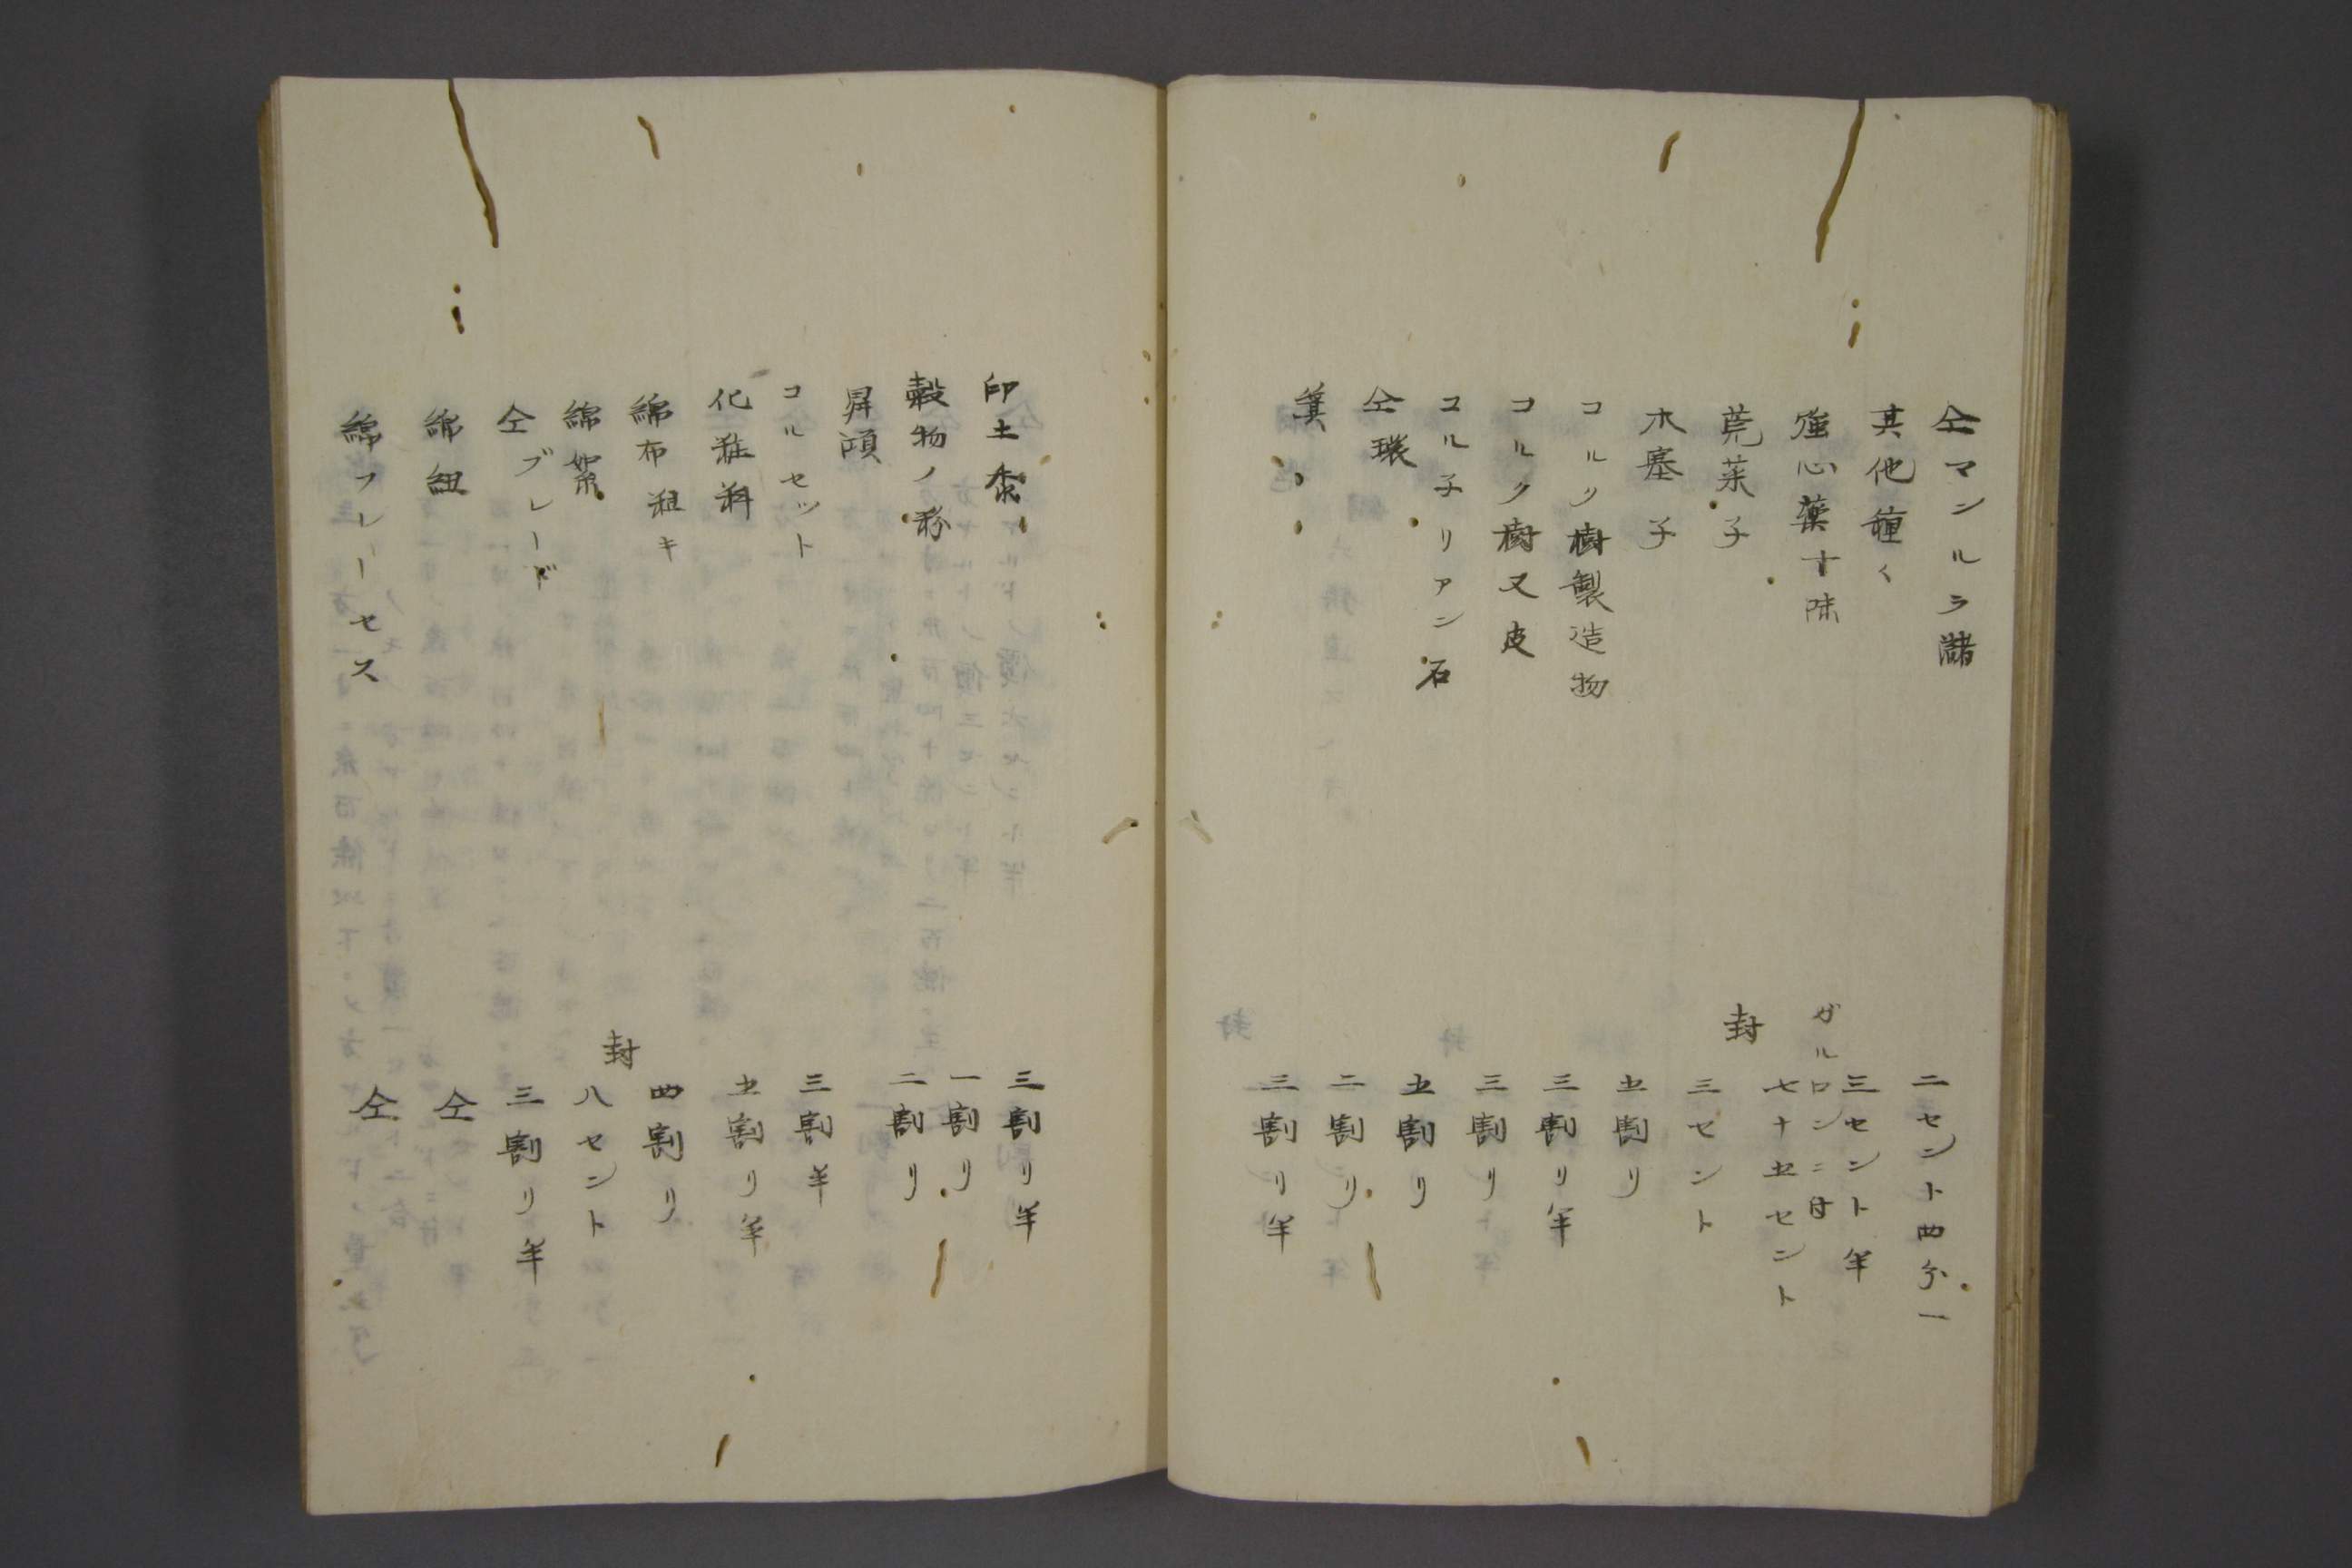 仝マンルラ諸　二セント四分一
其他種〻　三セント半
強心薬十味　ガルロンニ付七十五セント
莞茱子　封　三セント
木塞子　五割リ
コルク樹製造物　三割リ半
コルク樹又皮　三割リ
コル子リアン石　五割リ
仝環　二割リ
箕　三割リ半
印土黍　三割リ半
穀物ノ粉　一割リ
昇頂　二割リ
コルセット　三割半
化粧料　五割リ半
綿布粗キ　四割リ
綿絮　封　八セント
仝ブレード　三割リ半
綿紐　仝
綿フレーセス　仝